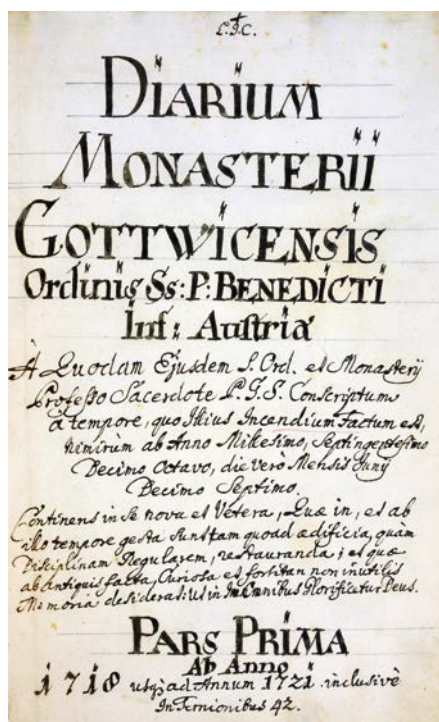 L.J.C.
DIARIUM
MONASTERII
GOTTWICENSIS
Ordinis Ss: P: BENEDICTI
Inf: Austria
A Quodam Ejusdem S. Ord. et Monasterij
Professo Sacerdote P. G. S. Conscriptum
à tempore, quo Illius Incendium Factum est,
Nimirùm ab Anno Millesimo, Septingentesimo
Decimo Octavo, die verò Mensis Junij
Decimo Septimo.
Continens in se nova et Vetera, Quæ in, et ab
illo tempore gesta sunt tam quoad ædificia, quàm
Disciplinam Regularem, restauranda; et quæ
ab antiquis facta, Curiosa et fortitan non inutilis
Memoria desiderat: Ut in Omnibus Glorificetur Deus.
PARS PRIMA
Ab Anno
1718 usqz ad Annum 1721 inclusivè
In Ternionibus 42.